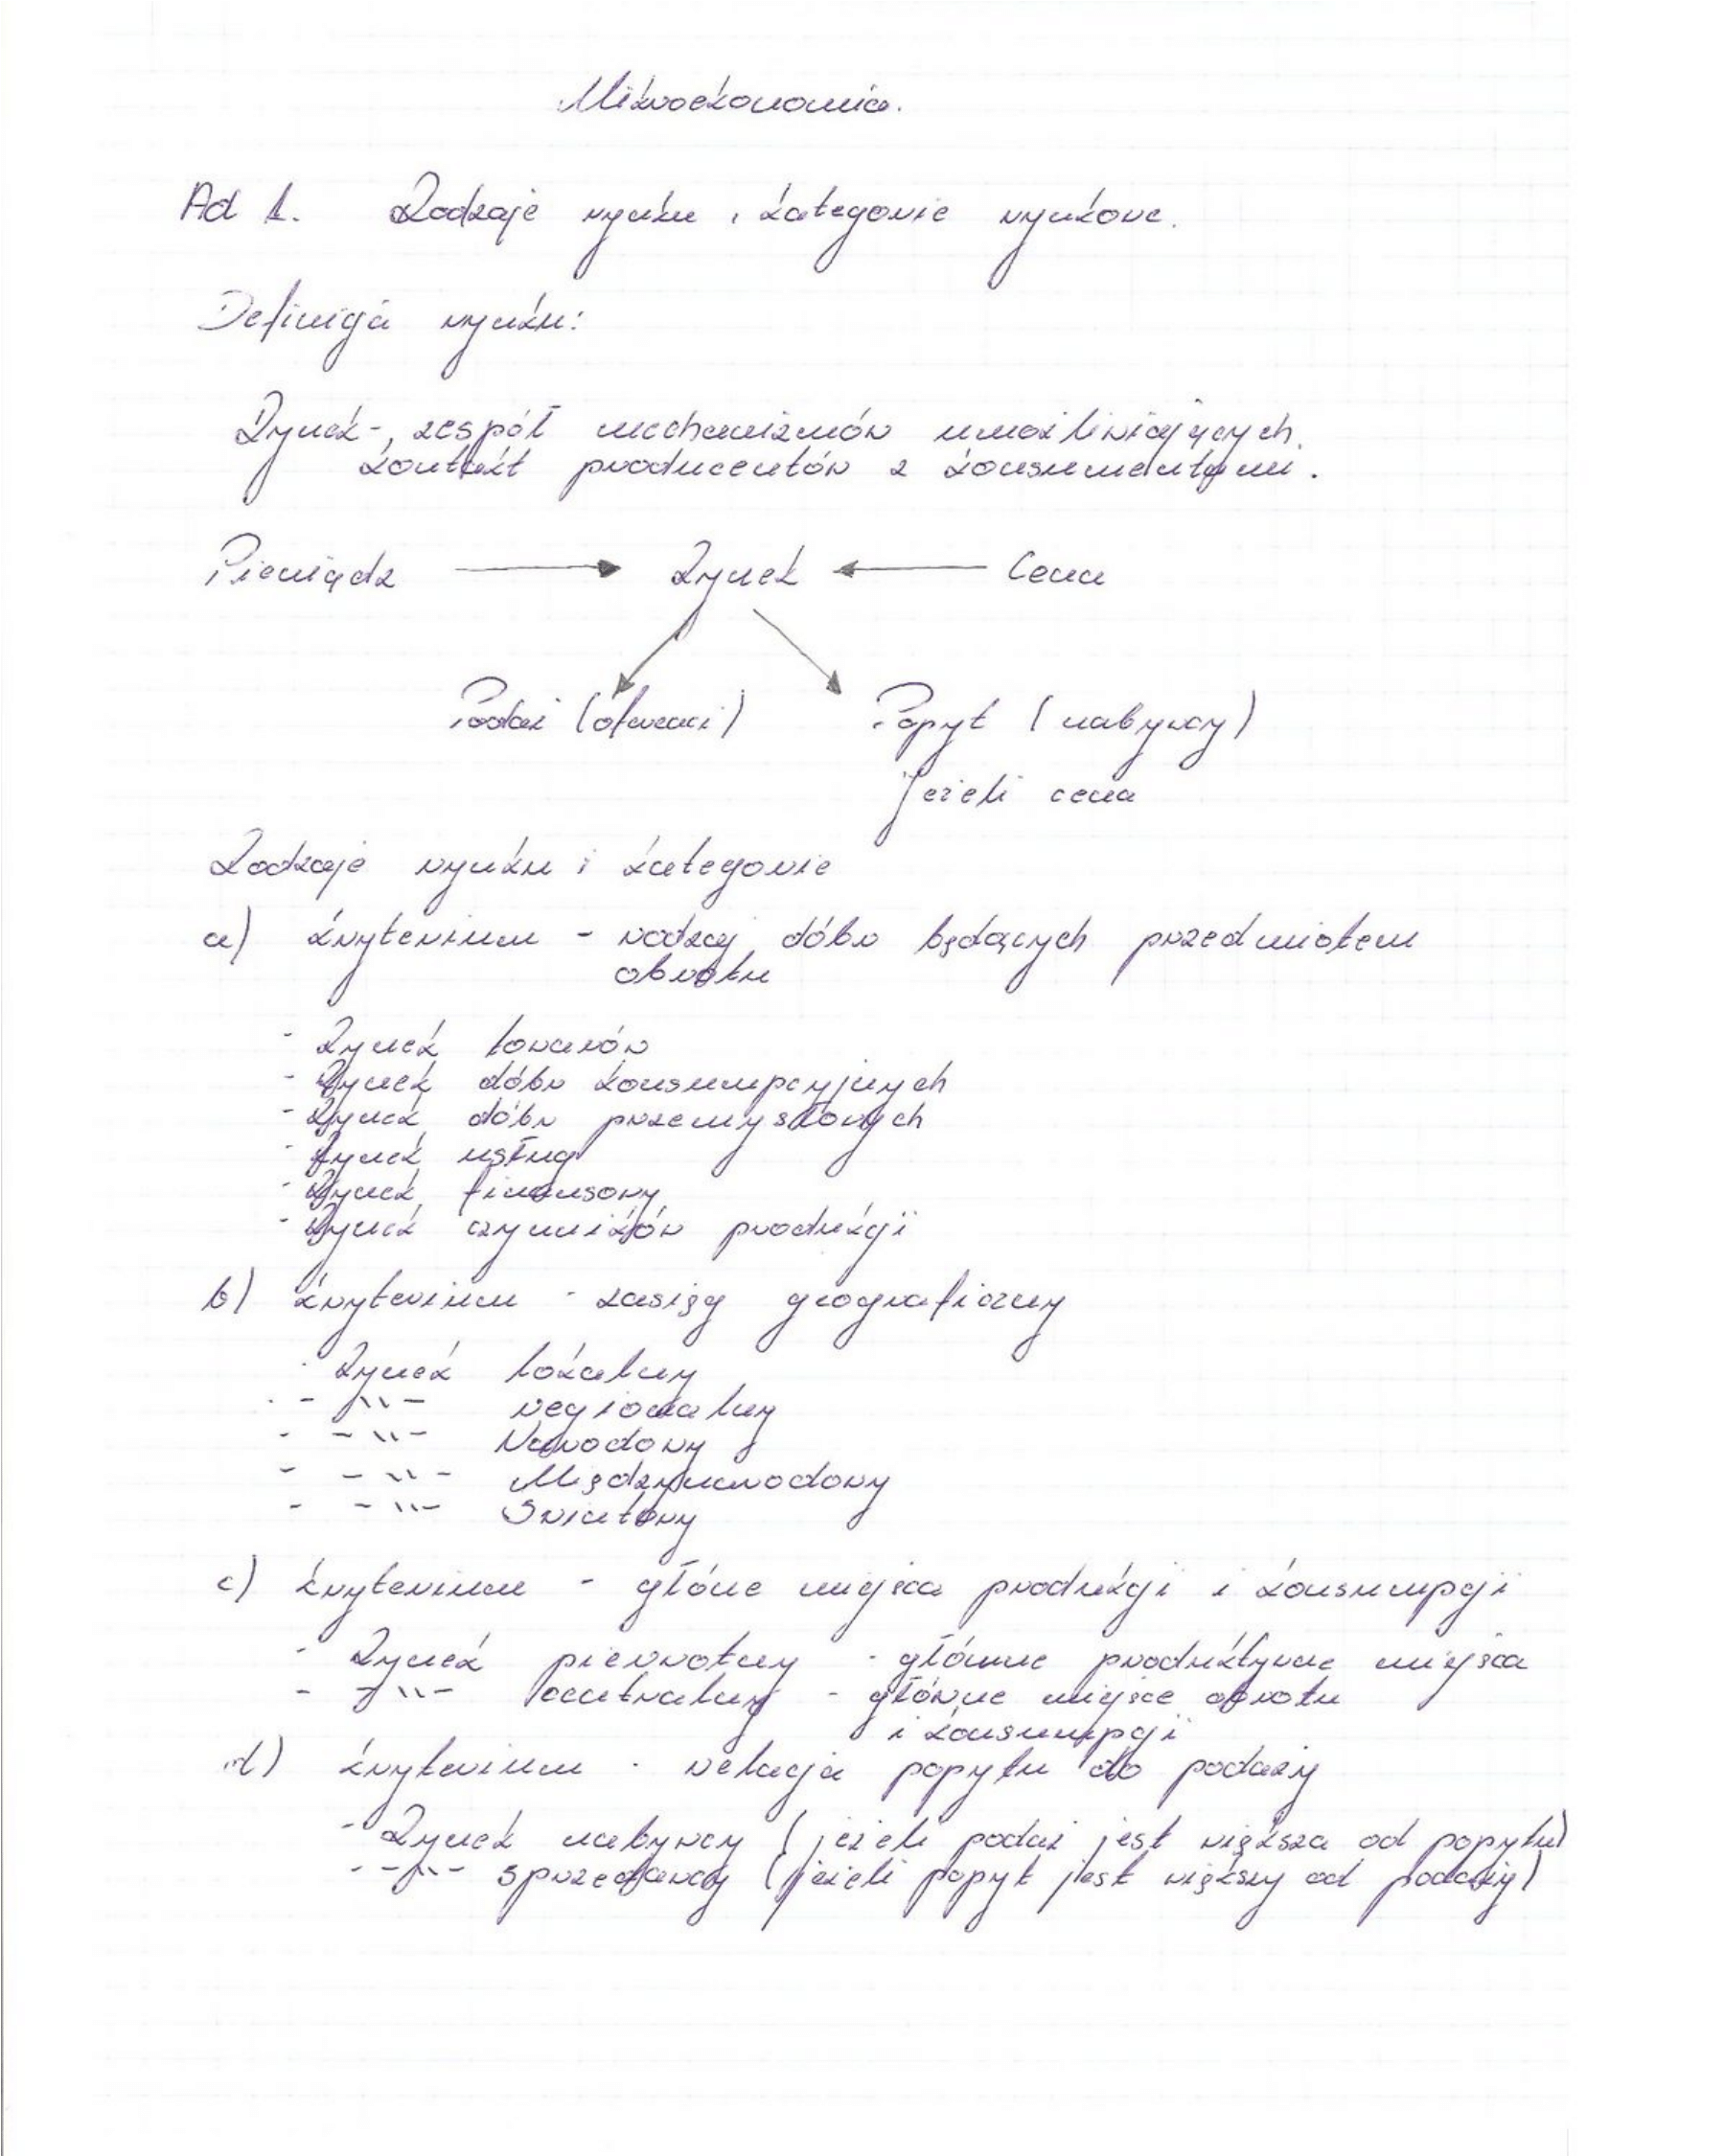 Mikroekonomia.
Ad 1. Rodzaje rynku i kategorie rynkowe.
Definicja rynku:
Rynek - zespół mechanizmów umożliwiających
kontakt producentów z konsumentami.
Pieniądz → Rynek ← Cena
Podaż (oferenci) Popyt (nabywcy)
jeżeli cena
Rodzaje rynku i kategorie
a) kryterium - rodzaj dóbr będących przedmiotem
obrotu
- Rynek towarów
- Rynek dóbr konsumpcyjnych
- Rynek dóbr przemysłowych
- Rynek usług
- Rynek finansowy
- Rynek czynników produkcji
b) kryterium - zasięg geograficzny
- Rynek lokalny
- -"- regionalny
- -"- Narodowy
- -"- Międzynarodowy
- -"- Światowy
c) kryterium - głóne miejsca produkcji i konsumpcji
- Rynek pierwotny - główne produktywne miejsca
- -"- centralny - główne miejsce obrotu
i konsumpcji
d) kryterium - relacja popytu do podaży
- Rynek nabywcy (jeżeli podaż jest większa od popytu)
- -"- sprzedawcy (jeżeli popyt jest większy od podaży)